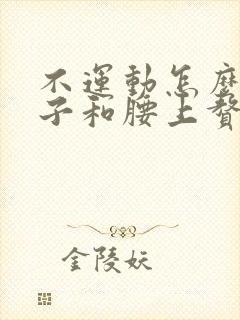 不運動怎麼
子和腰上贅
金陵妖